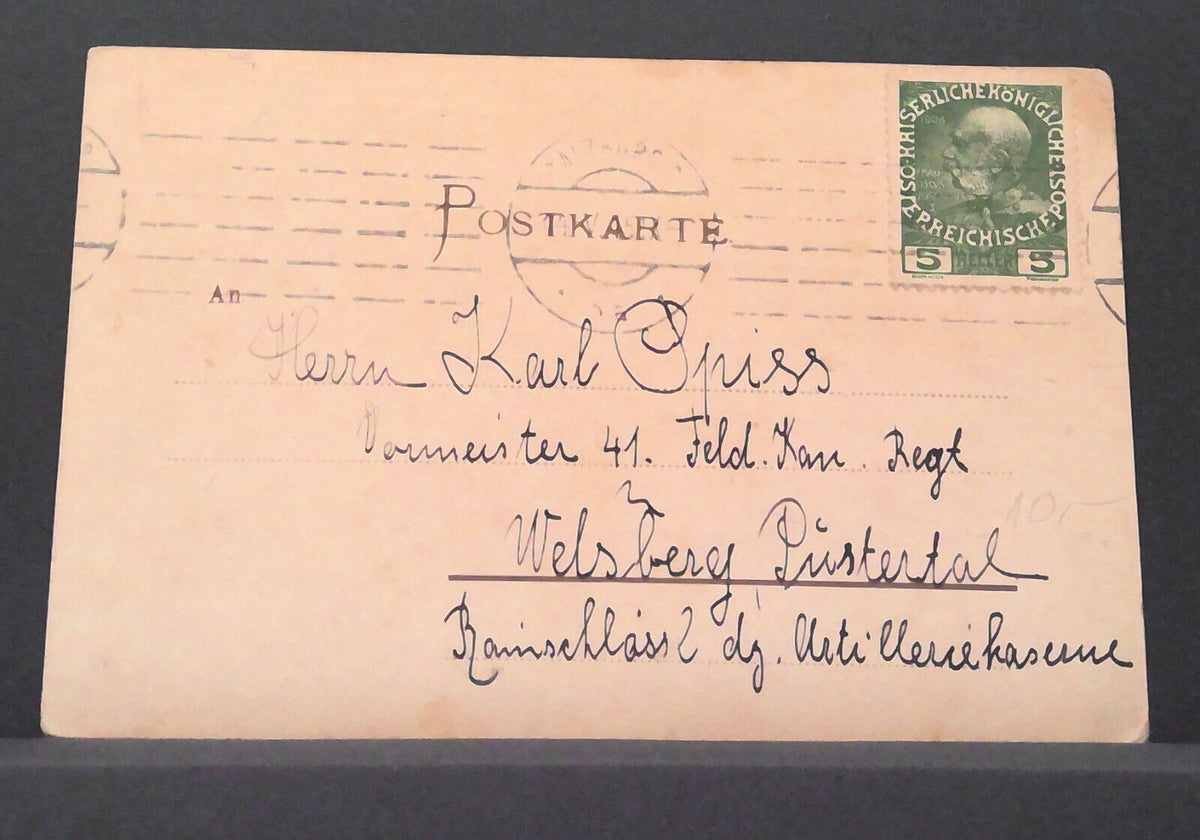 KAISERLICHE KÖNIGLICHE ÖSTERREICHISCHE POST
1908
5 HELLER 5
POSTKARTE
An
Herrn Karl Spiss
Vormeister 41. Feld. Kan. Regt
Welsberg Pustertal
Rainschlössl dz. Artilleriekaserne
10,-